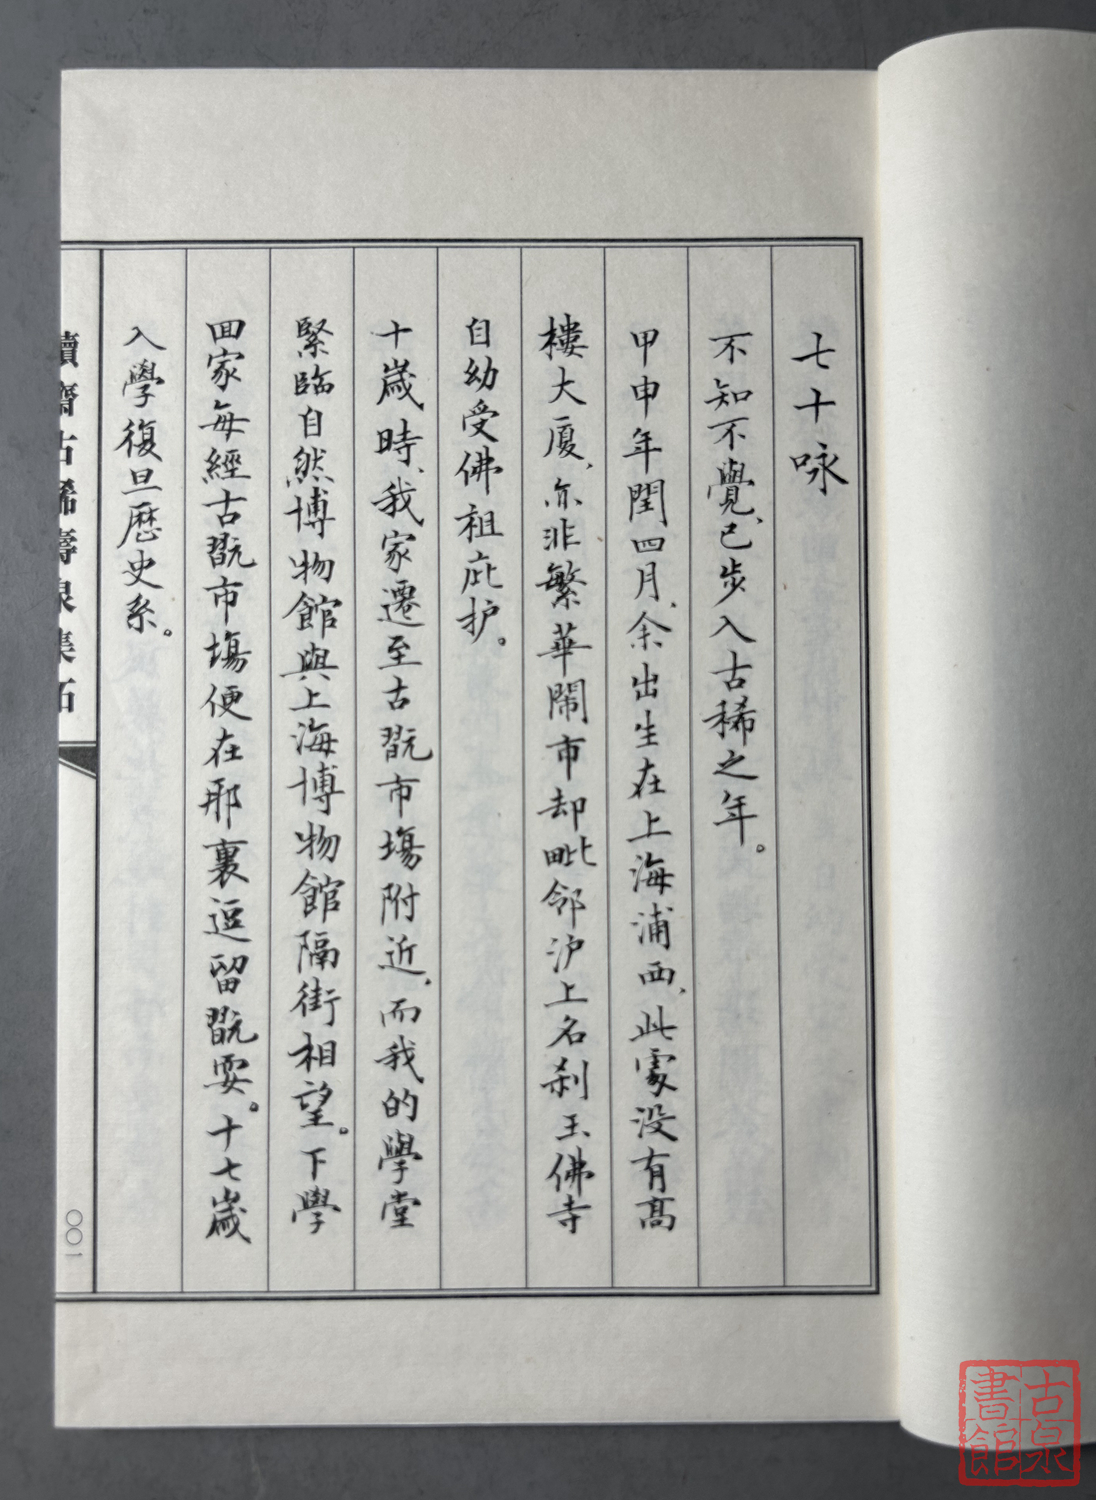 七十咏
不知不覺、已步入古稀之年。
甲申年閏四月、余出生在上海浦西、此處没有高
樓大厦、亦非繁華鬧市却毗邻沪上名刹玉佛寺
自幼受佛祖庇护。
十歲時、我家遷至古翫市場附近、而我的學堂
緊臨自然博物館與上海博物館隔街相望。下學
回家每經古翫市場便在那裏逗留翫耍。十七歲
入學復旦歷史系。
齋古稀壽泉集拓
〇〇一
古泉
書館